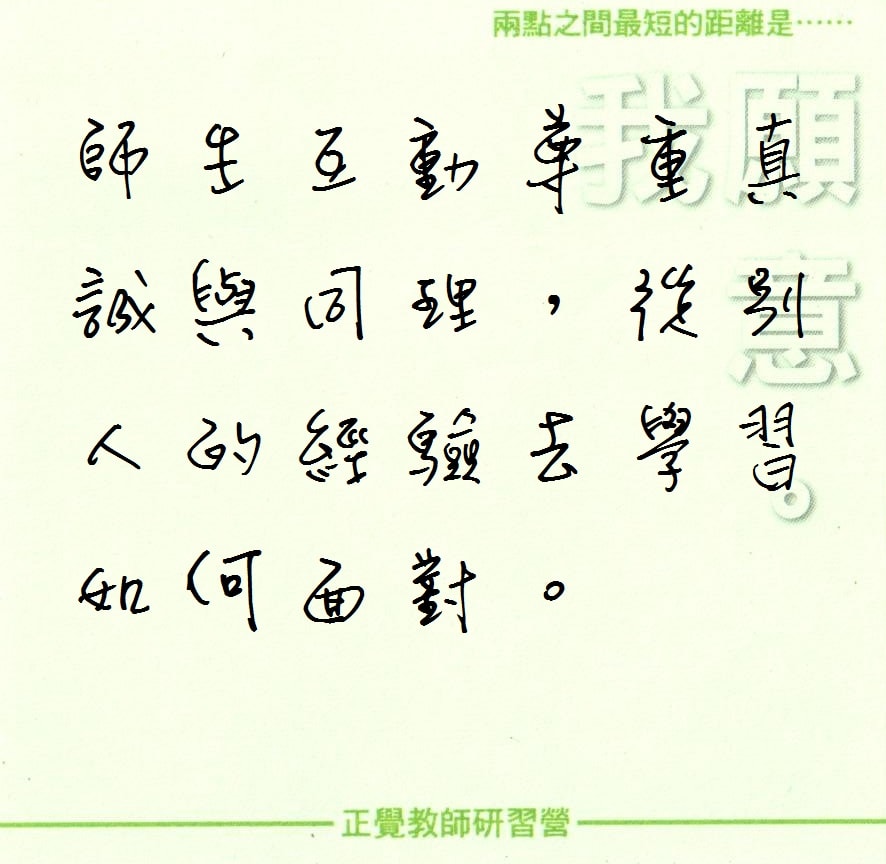 兩點之間最短的距離是……
我願
意。
師生互動尊重真
誠與同理，從別
人的經驗去學習
如何面對。
正覺教師研習營